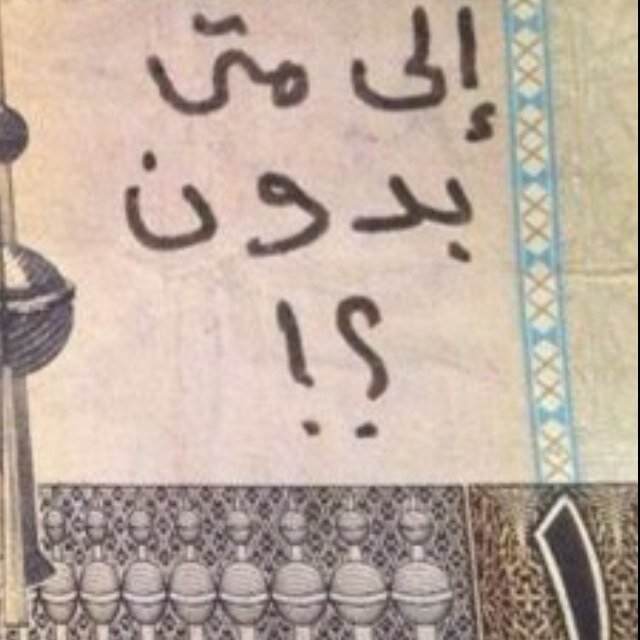 إلى متى
بدون
؟!
١